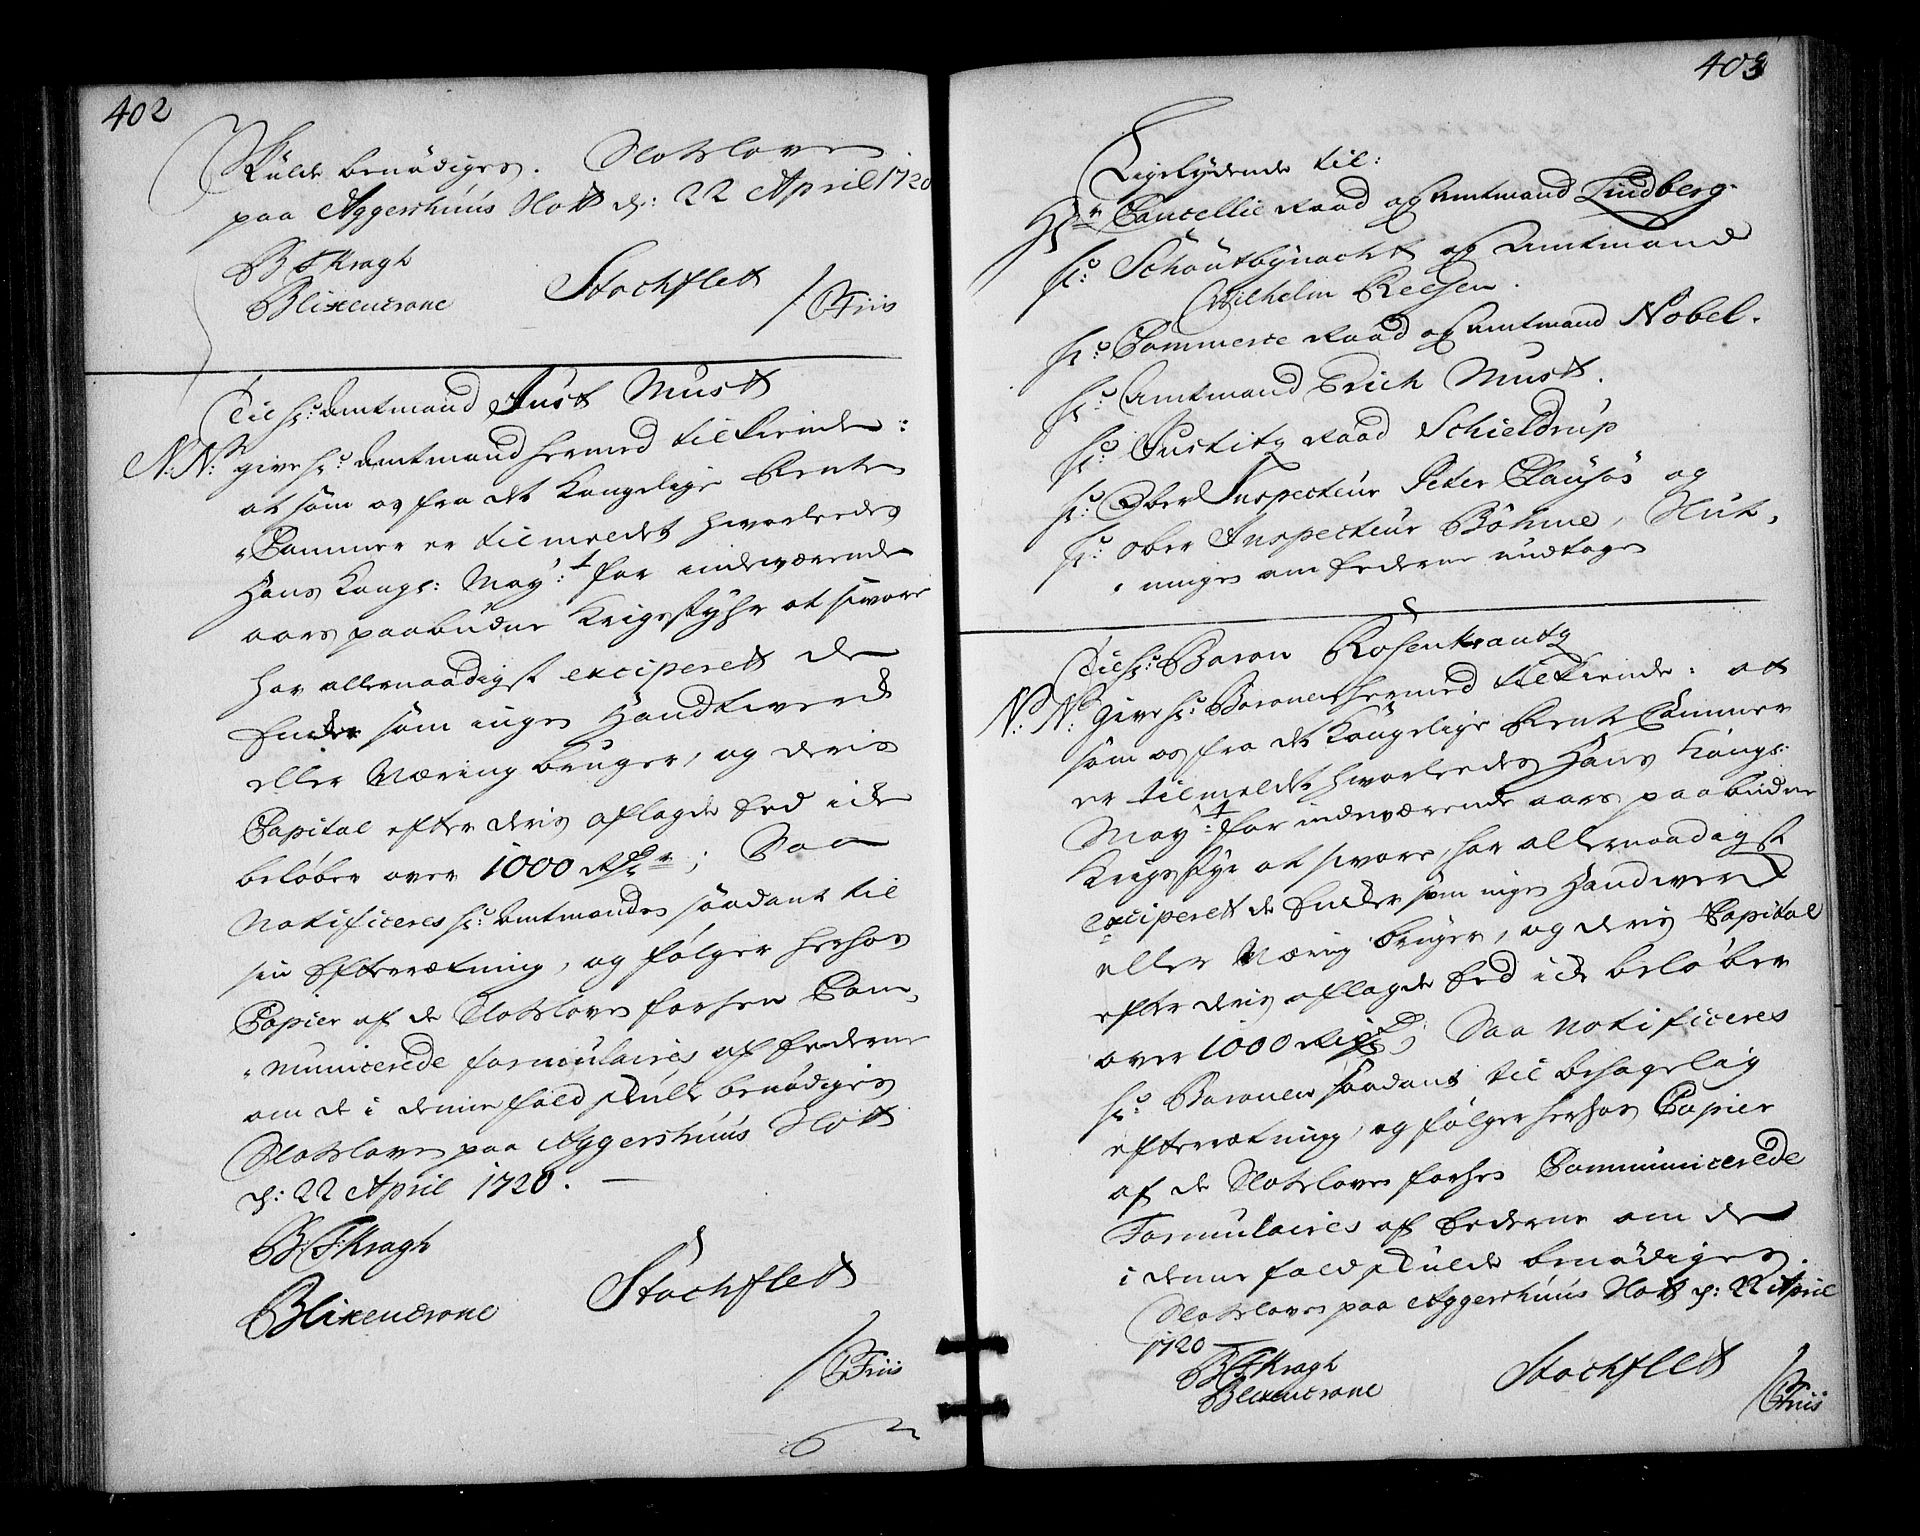 402
Skulde benödiges. Slotsloven
paa Aggershuus Slott d: 22 April 1720
B F Kragh
Blixencrone Stochflett
/ C Friis
Til hr: Amtmand Just Must
N: N: give hr: Amtmand hermed tilkiende:
at som os fra det Kongelige Rente
Cammer er tilmeldet hvorledes
Hans Kongl: May:t for indeværende
aars paabudne Krigs styhr at svare
har allernaadigst exciperett de
Enker som ingen Handtverck
eller Næring bruger, og deris
Capital efter deris aflagde Eed icke
belöber over 1000 Rdr; Saa
Notificeres hr: Amtmanden saadant til
sin Efterretning, og fölger herhos
Copier af de Slotsloven forhen Com-
municerede formulaires af Eederne
om de i denne fald skulle benödiges
Slotsloven paa Aggershuus Slott
d: 22 April 1720. —
B: F: Kragh
Blixencrone Stochflett
/ C Friis
403
Ligelydende til:
Hr Cancellie Raad og Amtmand Lindberg.
hr: Schoutbynacht og Amtmand
Wilhelm Reesen.
hr: Commerce Raad og Amtmand Nobel.
hr: Amtmand Erich Must.
hr: Justitz Raad Schieldrup
hr: Ober Inspecteur Peter Clausös og
hr: ober Inspecteur Böhme, Slut-
ninges om Eederne undtagen
Til hr: Baron Rosenkrantz
N: N: Give hr: Baronen hermed tilkiende: at
som os fra det Kongelige Rente Cammer
er tilmeldet hvorledes Hans Kongl:
May:t for indeværende aars paabudne
Krigs styr at svare, har allernaadigst
exciperett de Enker som ingen Handverck
eller Næring bruger, og deris Capital
efter deris aflagde Eed icke belöber
over 1000 Rixdr; Saa Notificeres
hr: Baronen saadant til behagelig
efterretning, og fölger herhos Copier
af de Slotsloven forhen Communicerede
Formulaires af Eederne om de
i denne fald skulde benödiges.
Slotsloven paa Aggershuus Slott d: 22 April
1720
B F Kragh Stochflett
Blixencrone / C Friis